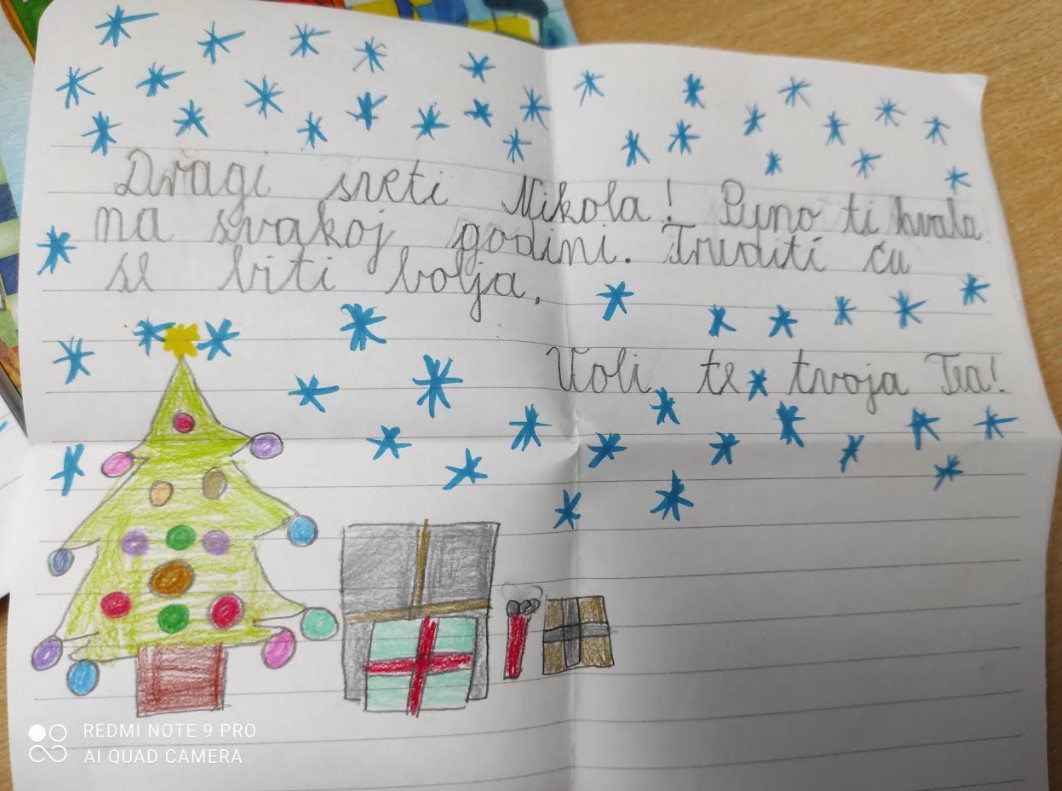 Dragi sveti Nikola! Puno ti hvala
na svakoj godini. Truditi ću
se biti bolja.
Voli te tvoja Tea!
REDMI NOTE 9 PRO
AI QUAD CAMERA